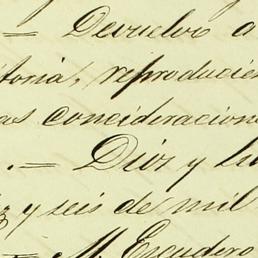 = Devuelvo a
itoria, reproducien
as concideracion
. = Dios y Li
z y seis de mil
= M. Escudero